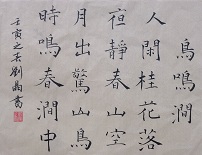 鳥鳴澗
人閑桂花落
夜靜春山空
月出驚山鳥
時鳴春澗中
壬寅之春劉書